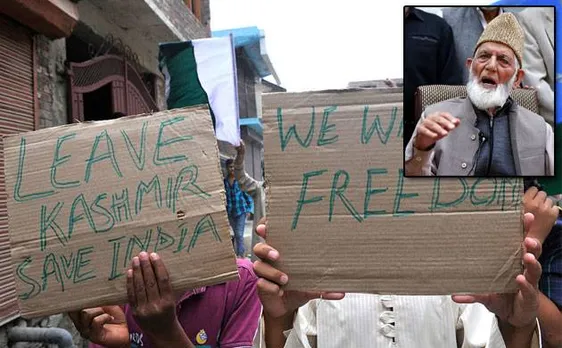 LEAVE
KASHMIR
SAVE INDIA
WE
FREEDOM